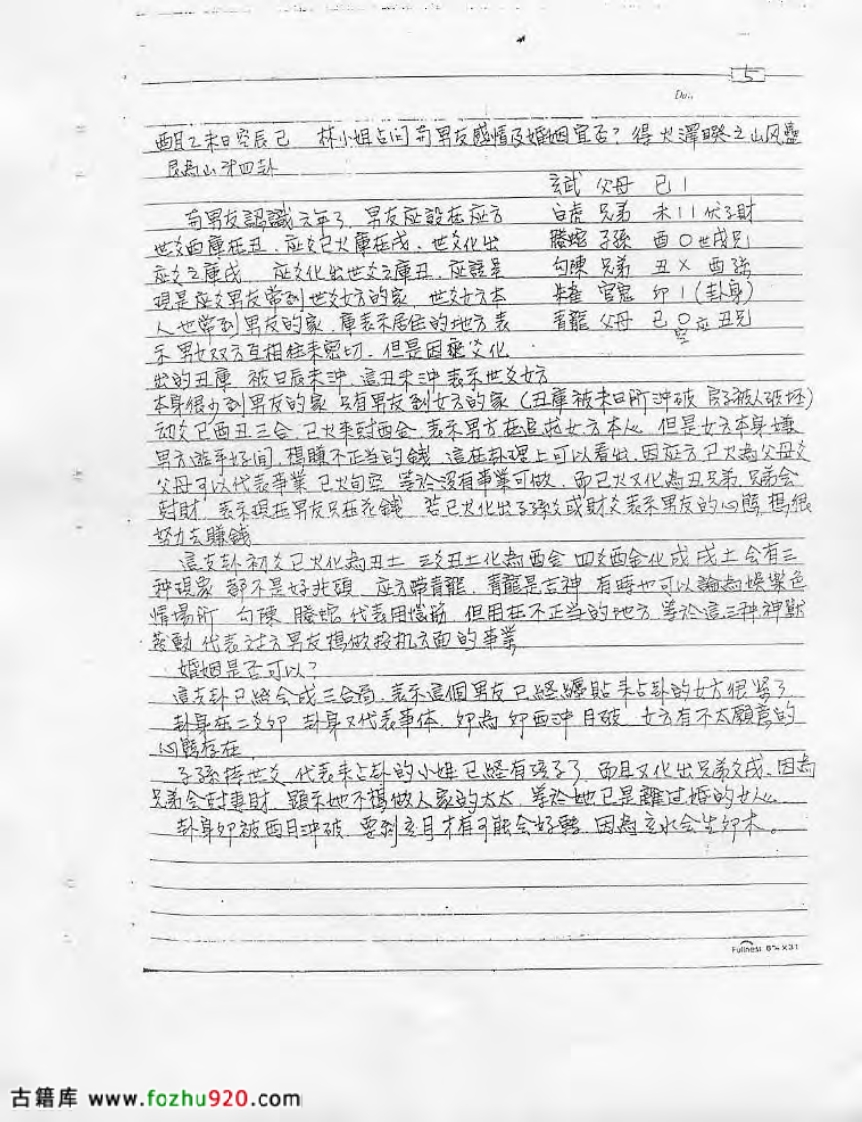 5
Da..
酉月乙未日空辰巳 林小姐占问苟男友感情及婚姻宜否? 得火澤睽之山风蠱
艮為山 第四卦
玄武 父母 巳 |
苟男友認識 年了, 男友应設在应方 白虎 兄弟 未 || 伏子財
世爻酉庫在丑, 应爻巳火庫在戌. 世爻化出 騰蛇 子孫 酉 〇 世戌兄
应爻之庫戌 应爻化出世爻之庫丑, 应該是 勾陳 兄弟 丑 × 酉孫
現是应爻男友常到世爻女方的家, 世爻女方本 朱雀 官鬼 卯 | (卦身)
人也常到男友的家. 庫表示居住的地方表 青龍 父母 巳 〇 应 丑兄
示男女双方互相往来密切. 但是因 爻化 空
出的丑庫 被日辰未沖, 這丑未沖表示世爻女方
本身很少到男友的家 只有男友到女方的家 (丑庫被未日所沖破 房子被人破坏)
动爻巳酉丑三合. 巳火来尅酉金, 表示男方在追求女方本人. 但是女方本身嫌
男方游手好闲, 想賺不正当的錢 這在卦理上可以看出, 因应方巳火為父母爻
父母可以代表事業 巳火旬空 等於没有事業可做. 而巳火又化為丑兄弟, 兄弟会
尅財 表示現在男友只在花錢 若巳火化出子孫爻或財爻表示男友的心態 想很
努力去賺錢
這支卦初爻巳火化為丑土 三爻丑土化為酉金 四爻酉金化成戌土 会有三
种現象 都不是好兆頭 应方臨青龍, 青龍是吉神 有時也可以論為娛楽色
情場所 勾陳 騰蛇 代表用腦筋, 但用在不正当的地方 等於這三种神獣
發動 代表 方男友想做投机方面的事業
婚姻是否可以?
這支卦已經会成三合局, 表示這個男友已經 貼来占卦的女方很紧了
卦身在二爻卯 卦身又代表事体. 卯為 卯酉沖 月破 女方有不太願意的
心態存在
子孫持世爻 代表来占卦的小姐已經有孩子了 而且又化出兄弟爻戌. 因為
兄弟会尅妻財. 顯示她不想做人家的太太, 等於她已是離过婚的女人.
卦身卯被酉月沖破 要到亥月才有可能会好轉 因為亥水会生卯木。
Fullness 6% X31
古籍库 www.fozhu920.com